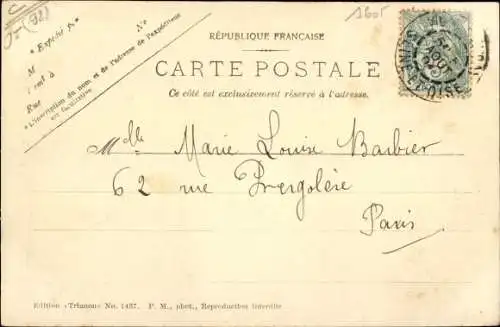 (92)
1605
"Expédié p."
M
Nº
Rue
"L'inscription du nom et de l'adresse de l'expéditeur
est facultative
RÉPUBLIQUE FRANÇAISE
CARTE POSTALE
Ce côté est exclusivement réservé à l'adresse.
Mlle Marie Louise Barbier
62 rue Pergolèse
Paris
Edition «Trianon» No. 1437. P. M., phot., Reproduction interdite